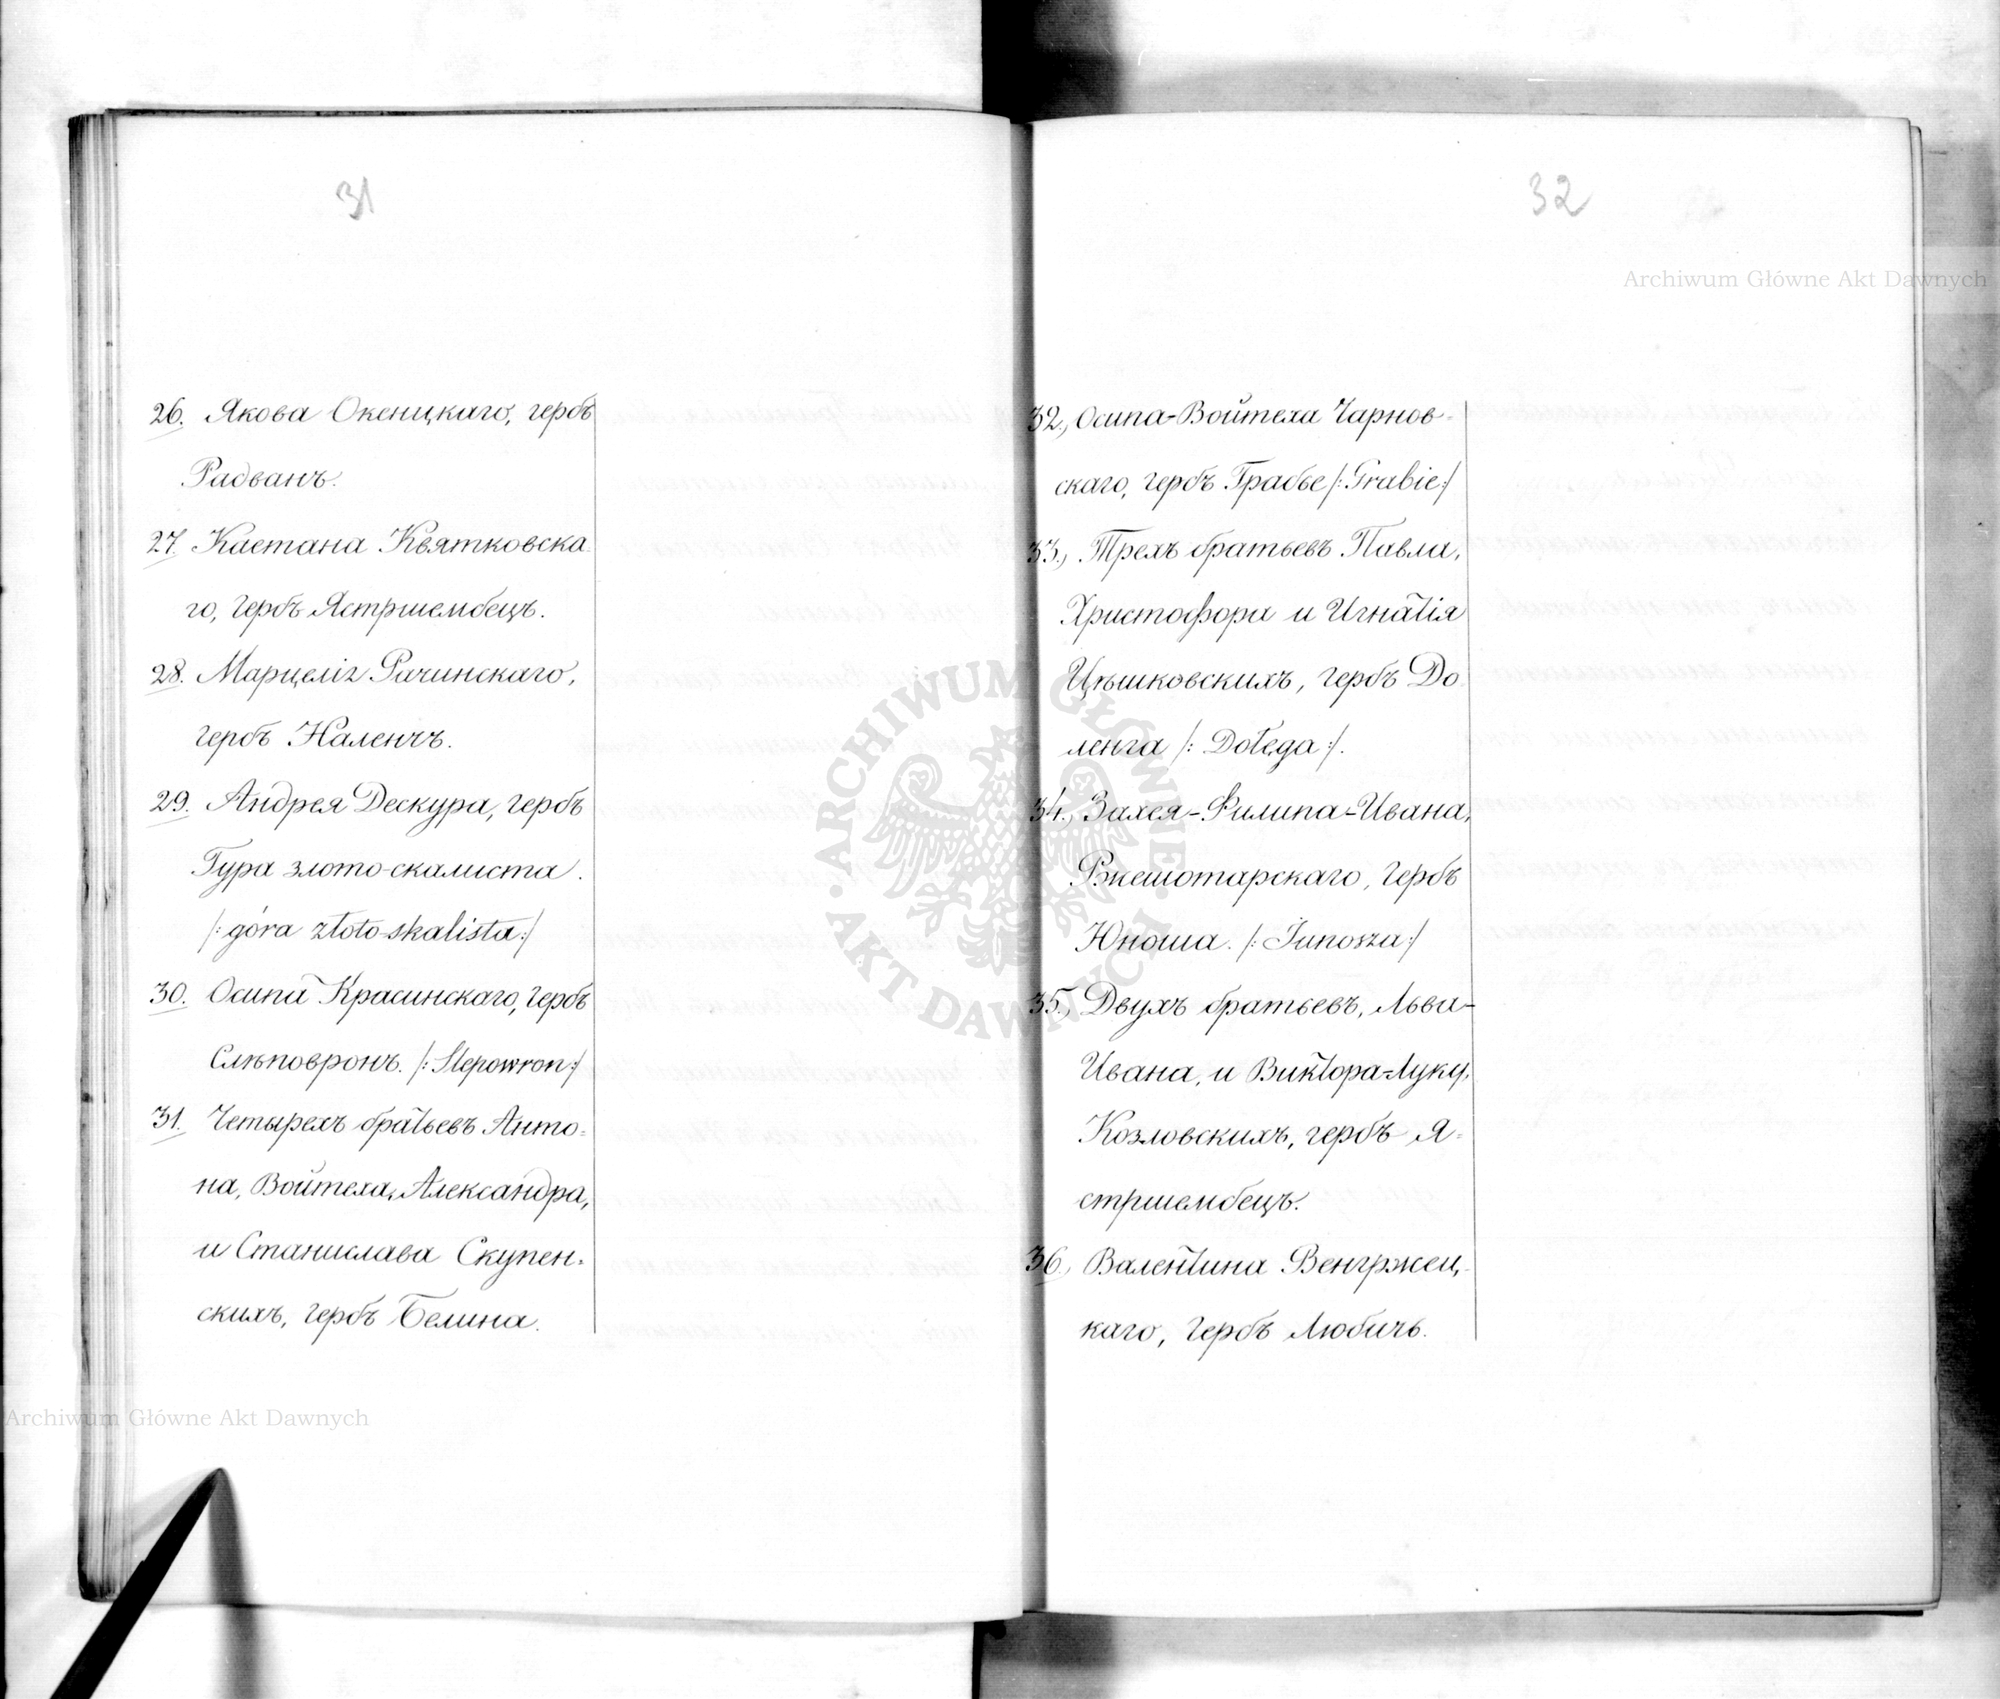 31
26. Якова Окенцкаго, гербъ
Радванъ.
27. Каетана Квятковска-
го, гербъ Ястршембецъ.
28. Марцеліz Рачинскаго,
гербъ Наленчъ.
29. Андрея Дескура, гербъ
Гура злото-скалиста.
/: góra złoto-skalista :/
30. Осипа Красинскаго, гербъ
Слѣповронъ. /: Slepowron :/
31. Четырехъ братьевъ Анто-
на, Войтеха, Александра,
и Станислава Скупен-
скихъ, гербъ Белина.
32
Archiwum Główne Akt Dawnych
32., Осипа-Войтеха Чарнов-
скаго, гербъ Грабье /: Grabie :/
33., Трехъ братьевъ Павла,
Христофора и Игнатія
Цѣшковскихъ, гербъ До-
ленга /: Dołęga :/.
34., Захея-Филипа-Ивана,
Ржешотарскаго, гербъ
Юноша. /: Junosza :/
35., Двухъ братьевъ, Льва-
Ивана, и Виктора-Луку,
Козловскихъ, гербъ Я-
стршембецъ.
36., Валентина Венгржец-
каго, гербъ Любичъ.
ARCHIWUM GŁÓWNE AKT DAWNYCH
Archiwum Główne Akt Dawnych